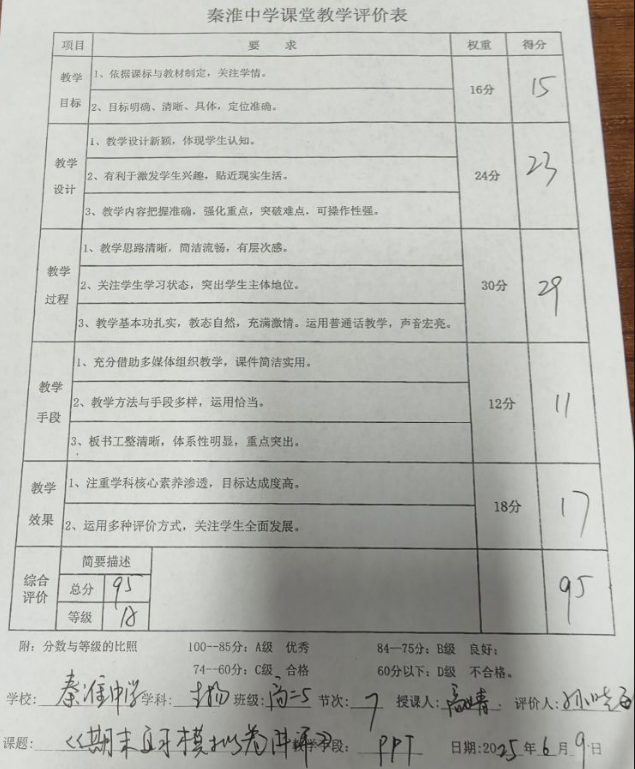 秦淮中学课堂教学评价表
项目 要 求 权重 得分
教学目标 1、依据课标与教材制定，关注学情。 16分 15
2、目标明确、清晰、具体，定位准确。
教学设计 1、教学设计新颖，体现学生认知。 24分 23
2、有利于激发学生兴趣，贴近现实生活。
3、教学内容把握准确，强化重点，突破难点，可操作性强。
教学过程 1、教学思路清晰，简洁流畅，有层次感。 30分 29
2、关注学生学习状态，突出学生主体地位。
3、教学基本功扎实，教态自然，充满激情。运用普通话教学，声音宏亮。
教学手段 1、充分借助多媒体组织教学，课件简洁实用。 12分 11
2、教学方法与手段多样，运用恰当。
3、板书工整清晰，体系性明显，重点突出。
教学效果 1、注重学科核心素养渗透，目标达成度高。 18分 17
2、运用多种评价方式，关注学生全面发展。
综合评价 简要描述 95
总分 95
等级 A
附：分数与等级的比照 100--85分：A级 优秀 84—75分：B级 良好：
74--60分：C级 合格 60分以下：D级 不合格。
学校：秦淮中学 学科：生物 班级：高二5 节次：7 授课人：高婧 评价人：孙
课题：《期末模拟卷讲评》 手段：PPT 日期：2025年6月9日